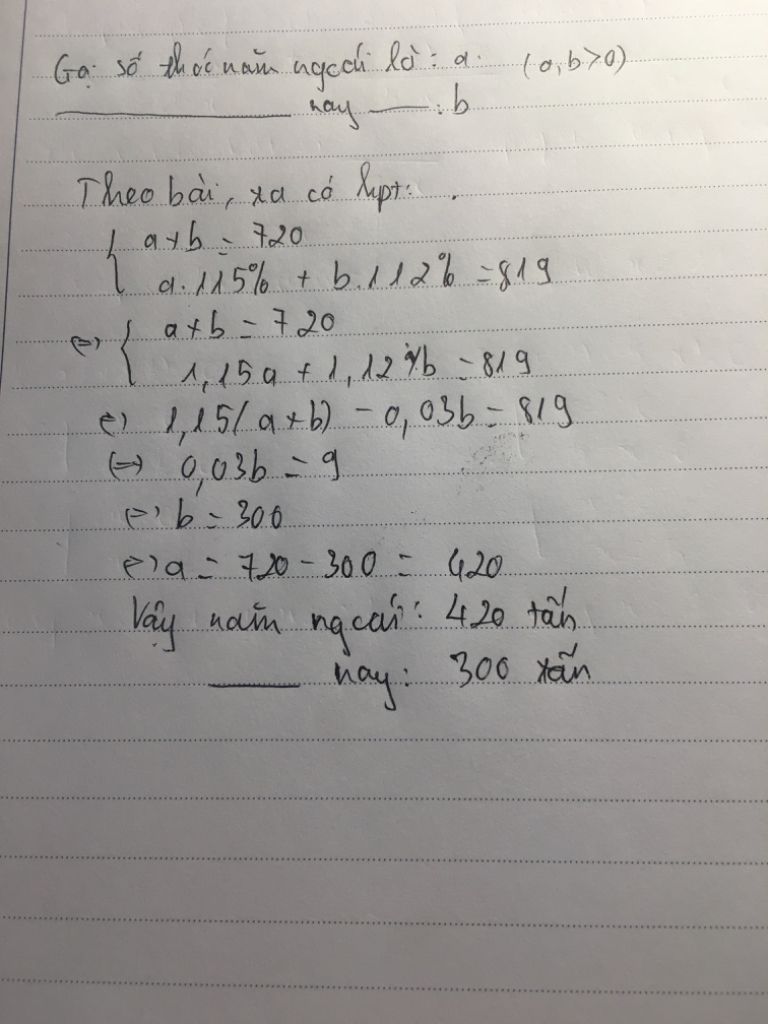 Gọi số thóc năm ngoái là: a. (a, b > 0)
—— nay —— : b
Theo bài, ta có hpt:
{ a + b = 720
a.115% + b.112% = 819
<=> { a + b = 720
1,15a + 1,12b = 819
<=> 1,15(a + b) - 0,03b = 819
<=> 0,03b = 9
<=> b = 300
<=> a = 720 - 300 = 420
Vậy năm ngoái: 420 tấn
—— nay: 300 tấn